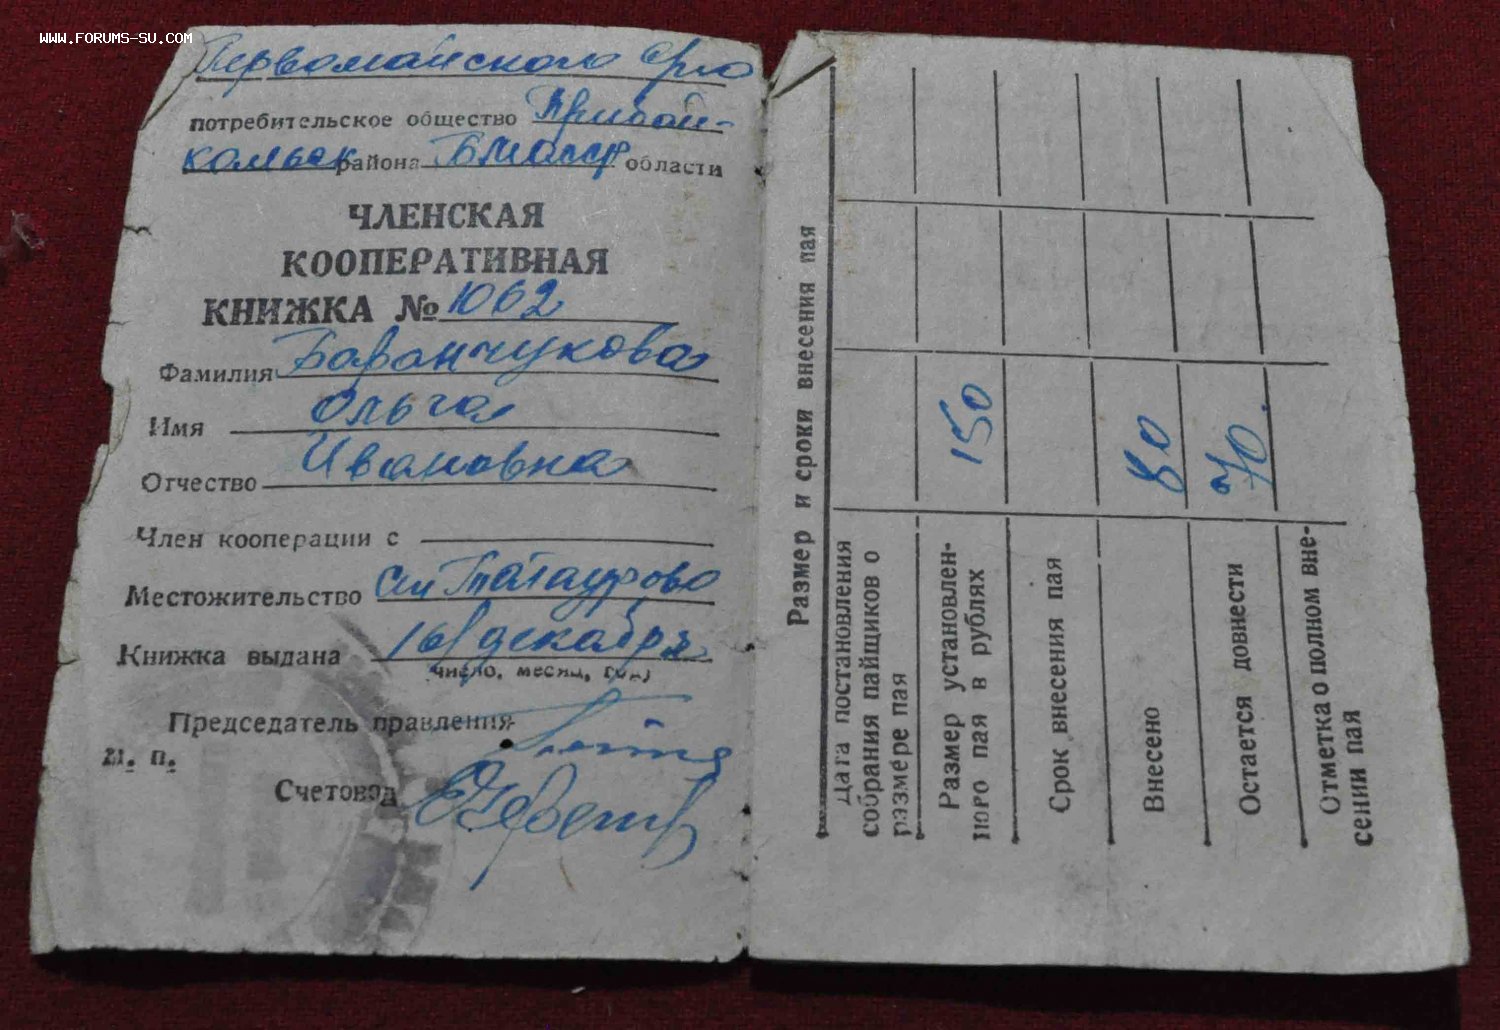 WWW.FORUMS-SU.COM
Первомайского
потребительское общество Прибай-
кальск района БМАССР области
ЧЛЕНСКАЯ
КООПЕРАТИВНАЯ
КНИЖКА № 1062
Фамилия Баранчукова
Имя Ольга
Отчество Ивановна
Член кооперации с
Местожительство Татаурово
Книжка выдана 16/декабря
число, месяц, год
Председатель правления
М. п.
Счетовод
Размер и сроки внесения пая
Дата постановления
собрания пайщиков о
размере пая
Размер установлен-
ного пая в рублях
150
Срок внесения пая
Внесено
80
Остается довнести
70.
Отметка о полном вне-
сении пая